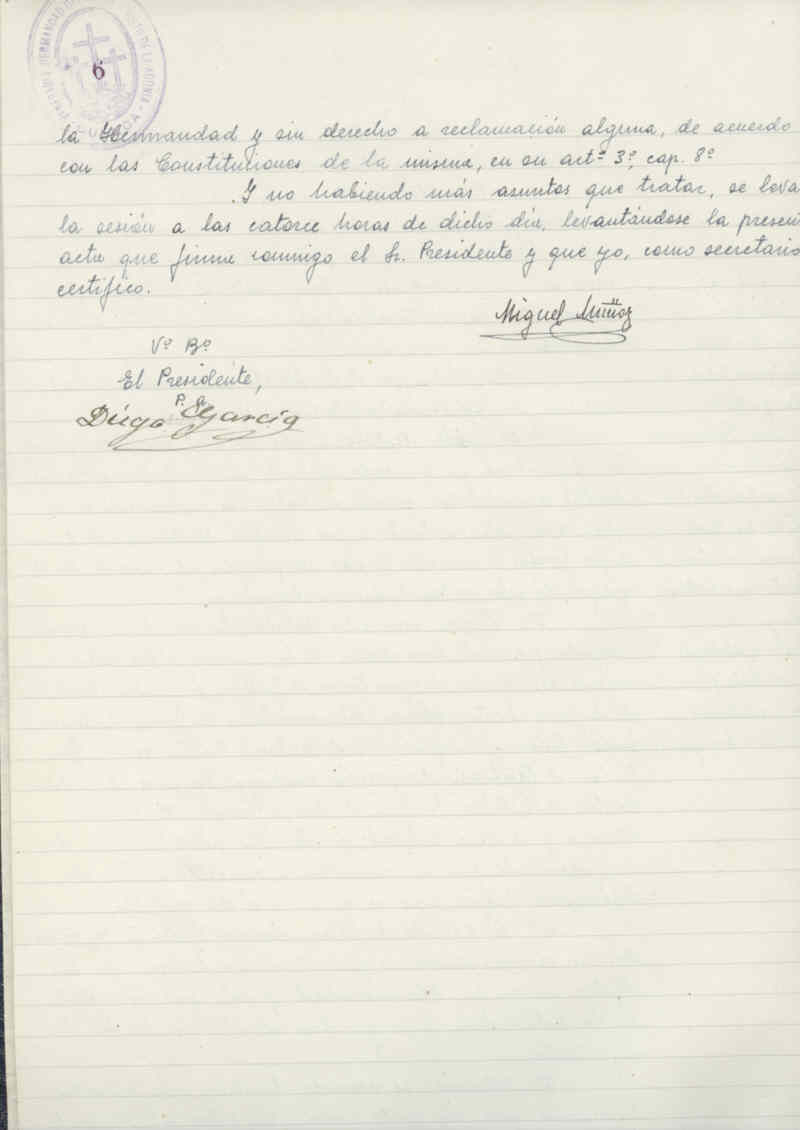 6
la Hermandad y sin derecho a reclamación alguna, de acuerdo
con las Constituciones de la misma, en su artº 3º, cap. 8º
Y no habiendo más asuntos que tratar, se leva
la sesión a las catorce horas de dicho día, levantándose la presen
acta que firma conmigo el Sr. Presidente y que yo, como secretario
certifico.
Miguel Muñoz
Vº Bº
El Presidente,
P. A.
Diego García